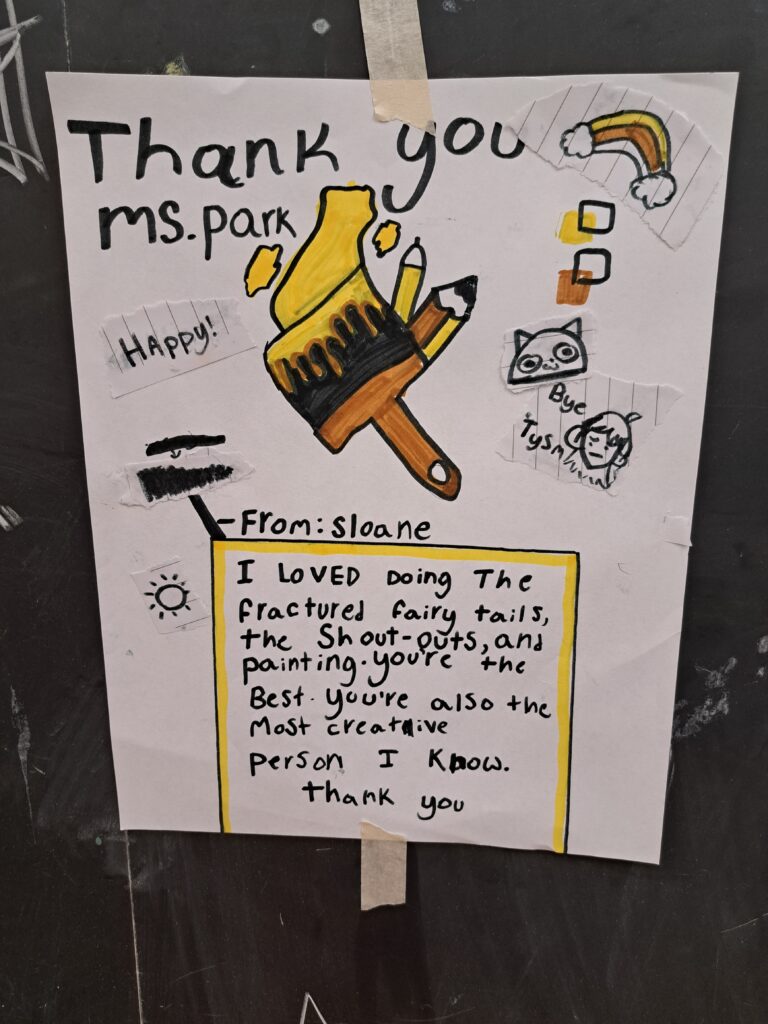 Thank you
ms. park
HAPPY!
Bye
Tysm
-From: sloane
I LOVED Doing The
fractured fairy tails,
the Shout-outs, and
painting. you're the
Best. you're also the
Most creative
person I Know.
thank you